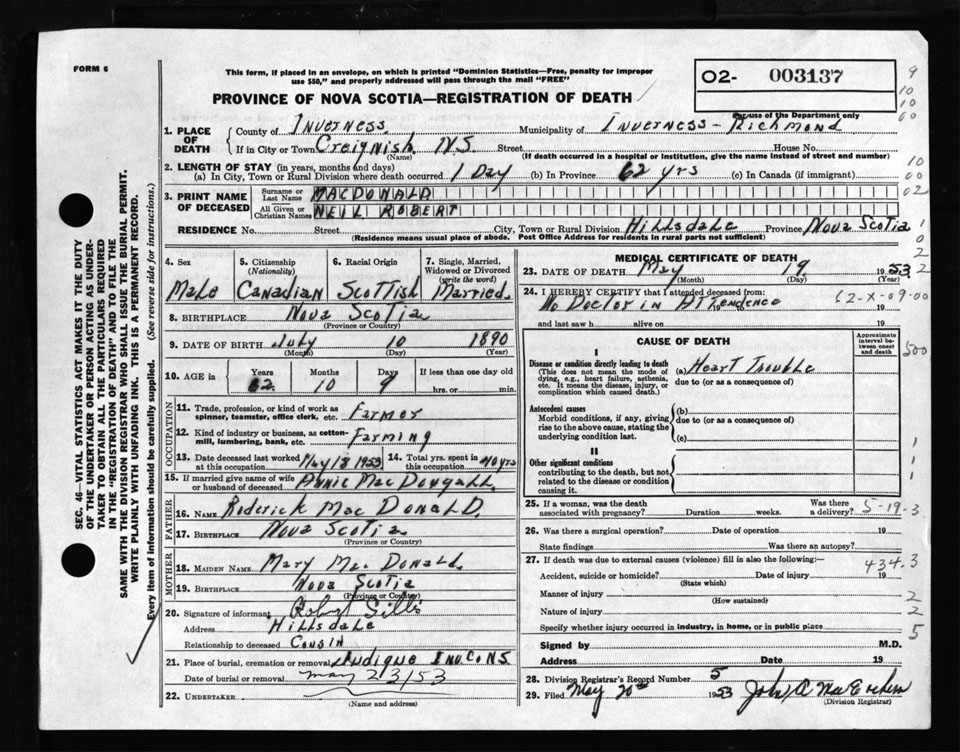 FORM 6
This form, if placed in an envelope, on which is printed "Dominion Statistics—Free, penalty for improper
use $50," and properly addressed will pass through the mail "FREE"
O2- 003137
PROVINCE OF NOVA SCOTIA—REGISTRATION OF DEATH
For use of the Department only
9
10
10
00
1. PLACE OF DEATH
County of Inverness Municipality of Inverness - Richmond
If in City or Town Creignish N.S. Street House No.
(Name) (If death occurred in a hospital or institution, give the name instead of street and number)
2. LENGTH OF STAY (in years, months and days)
(a) In City, Town or Rural Division where death occurred 1 Day (b) In Province 62 yrs (c) In Canada (if immigrant)
10
00
02
3. PRINT NAME OF DECEASED
Surname or Last Name MACDONALD
All Given or Christian Names NEIL ROBERT
RESIDENCE No. Street City, Town or Rural Division Hillsdale Province Nova Scotia
(Residence means usual place of abode. Post Office Address for residents in rural parts not sufficient)
4. Sex
Male
5. Citizenship
(Nationality)
Canadian
6. Racial Origin
Scottish
7. Single, Married, Widowed or Divorced
(write the word)
Married
8. BIRTHPLACE Nova Scotia
(Province or Country)
9. DATE OF BIRTH July 10 1890
(Month) (Day) (Year)
10. AGE in Years Months Days If less than one day old
62 10 9 hrs. or min.
OCCUPATION
11. Trade, profession, or kind of work as
spinner, teamster, office clerk, etc. Farmer
12. Kind of industry or business, as cotton-
mill, lumbering, bank, etc. Farming
13. Date deceased last worked
at this occupation May 18 1953
14. Total yrs. spent in
this occupation 40 yrs
15. If married give name of wife
or husband of deceased Annie MacDougall
FATHER
16. Name Roderick Mac Donald.
17. Birthplace Nova Scotia
(Province or Country)
MOTHER
18. MAIDEN NAME Mary Mac Donald.
19. BIRTHPLACE Nova Scotia
(Province or Country)
20. Signature of informant Robert
Address Hillsdale
Relationship to deceased Cousin
21. Place of burial, cremation or removal Judique Inv. Co NS
Date of burial or removal May 23/53
22. UNDERTAKER
(Name and address)
MEDICAL CERTIFICATE OF DEATH
23. DATE OF DEATH May 19 1953
(Month) (Day) (Year)
24. I HEREBY CERTIFY that I attended deceased from:
No Doctor in Attendence
19 to 19
and last saw h alive on 19
(2-X-09-00
CAUSE OF DEATH
Approximate interval between onset and death
500
I
Disease or condition directly leading to death
(This does not mean the mode of
dying, e.g., heart failure, asthenia,
etc. It means the disease, injury, or
complication which caused death.)
(a) Heart Trouble
due to (or as a consequence of)
Antecedent causes
Morbid conditions, if any, giving
rise to the above cause, stating the
underlying condition last.
(b)
due to (or as a consequence of)
(c)
II
Other significant conditions
contributing to the death, but not
related to the disease or condition
causing it.
25. If a woman, was the death
associated with pregnancy? Duration weeks. Was there
a delivery?
5-19-3
26. Was there a surgical operation? Date of operation 19
State findings Was there an autopsy?
27. If death was due to external causes (violence) fill in also the following:—
434.3
Accident, suicide or homicide? Date of injury 19
(State which)
Manner of injury
(How sustained)
2
Nature of injury
2
Specify whether injury occurred in industry, in home, or in public place
5
Signed by M.D.
Address Date 19
28. Division Registrar's Record Number 5
29. Filed May 20th 1953 John A MacEachern
(Division Registrar)
SEC. 46—VITAL STATISTICS ACT MAKES IT THE DUTY
OF THE UNDERTAKER OR PERSON ACTING AS UNDER-
TAKER TO OBTAIN ALL THE PARTICULARS REQUIRED
IN THE "REGISTRATION OF DEATH" AND TO FILE THE
SAME WITH THE DIVISION REGISTRAR WHO SHALL ISSUE THE BURIAL PERMIT.
WRITE PLAINLY WITH UNFADING INK. THIS IS A PERMANENT RECORD.
Every item of information should be carefully supplied. (See reverse side for instructions.)